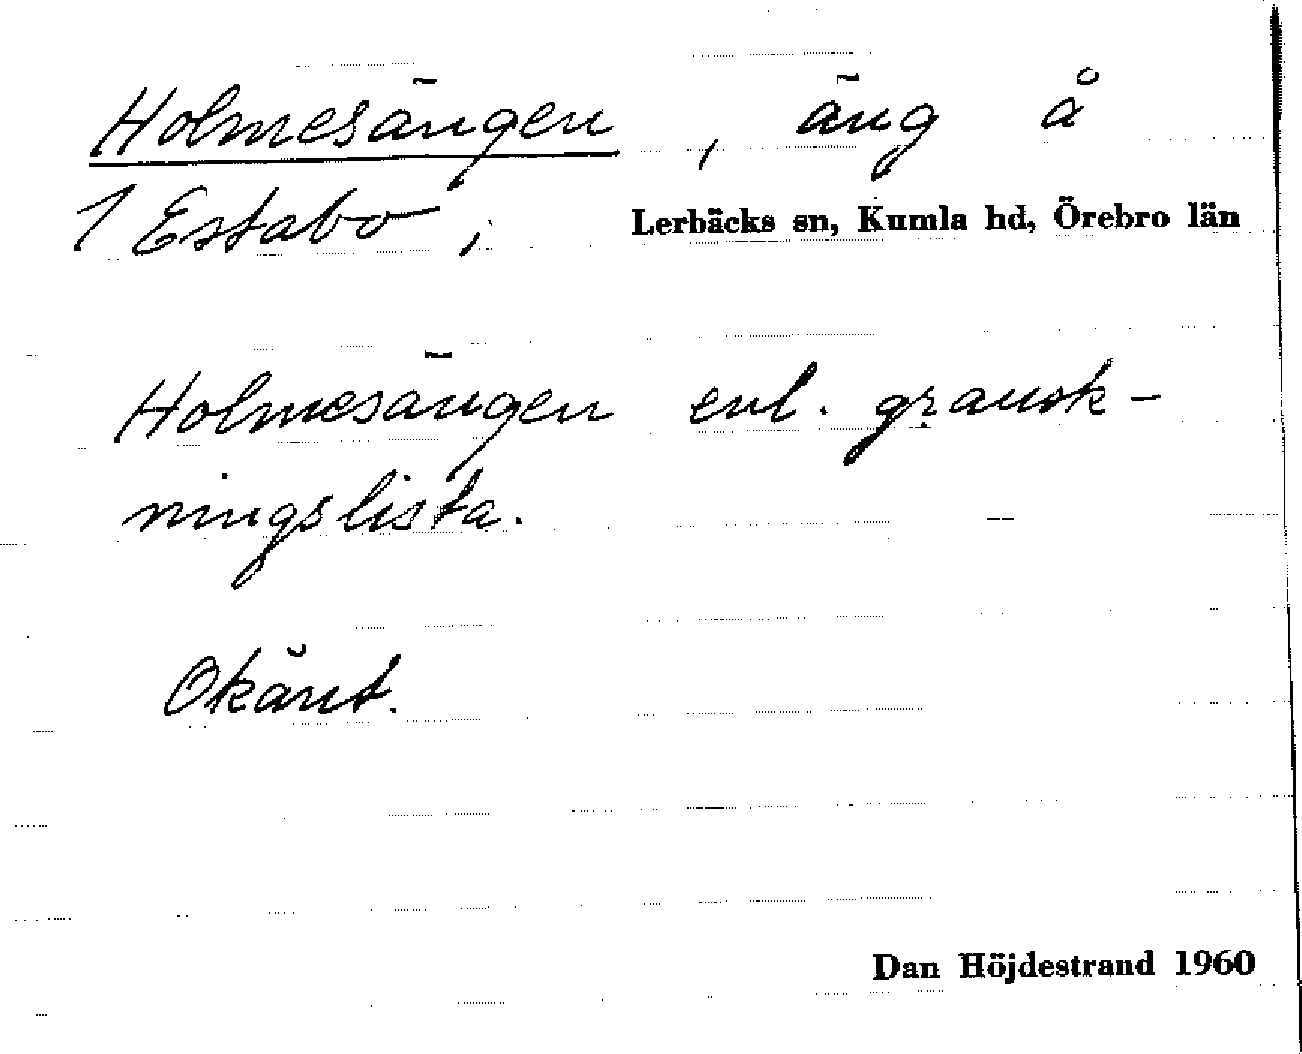 Holmesängen, äng å
1 Estabo, Lerbäcks sn, Kumla hd, Örebro län
Holmesängen enl. gransk-
ningslista.
Okänt.
Dan Höjdestrand 1960